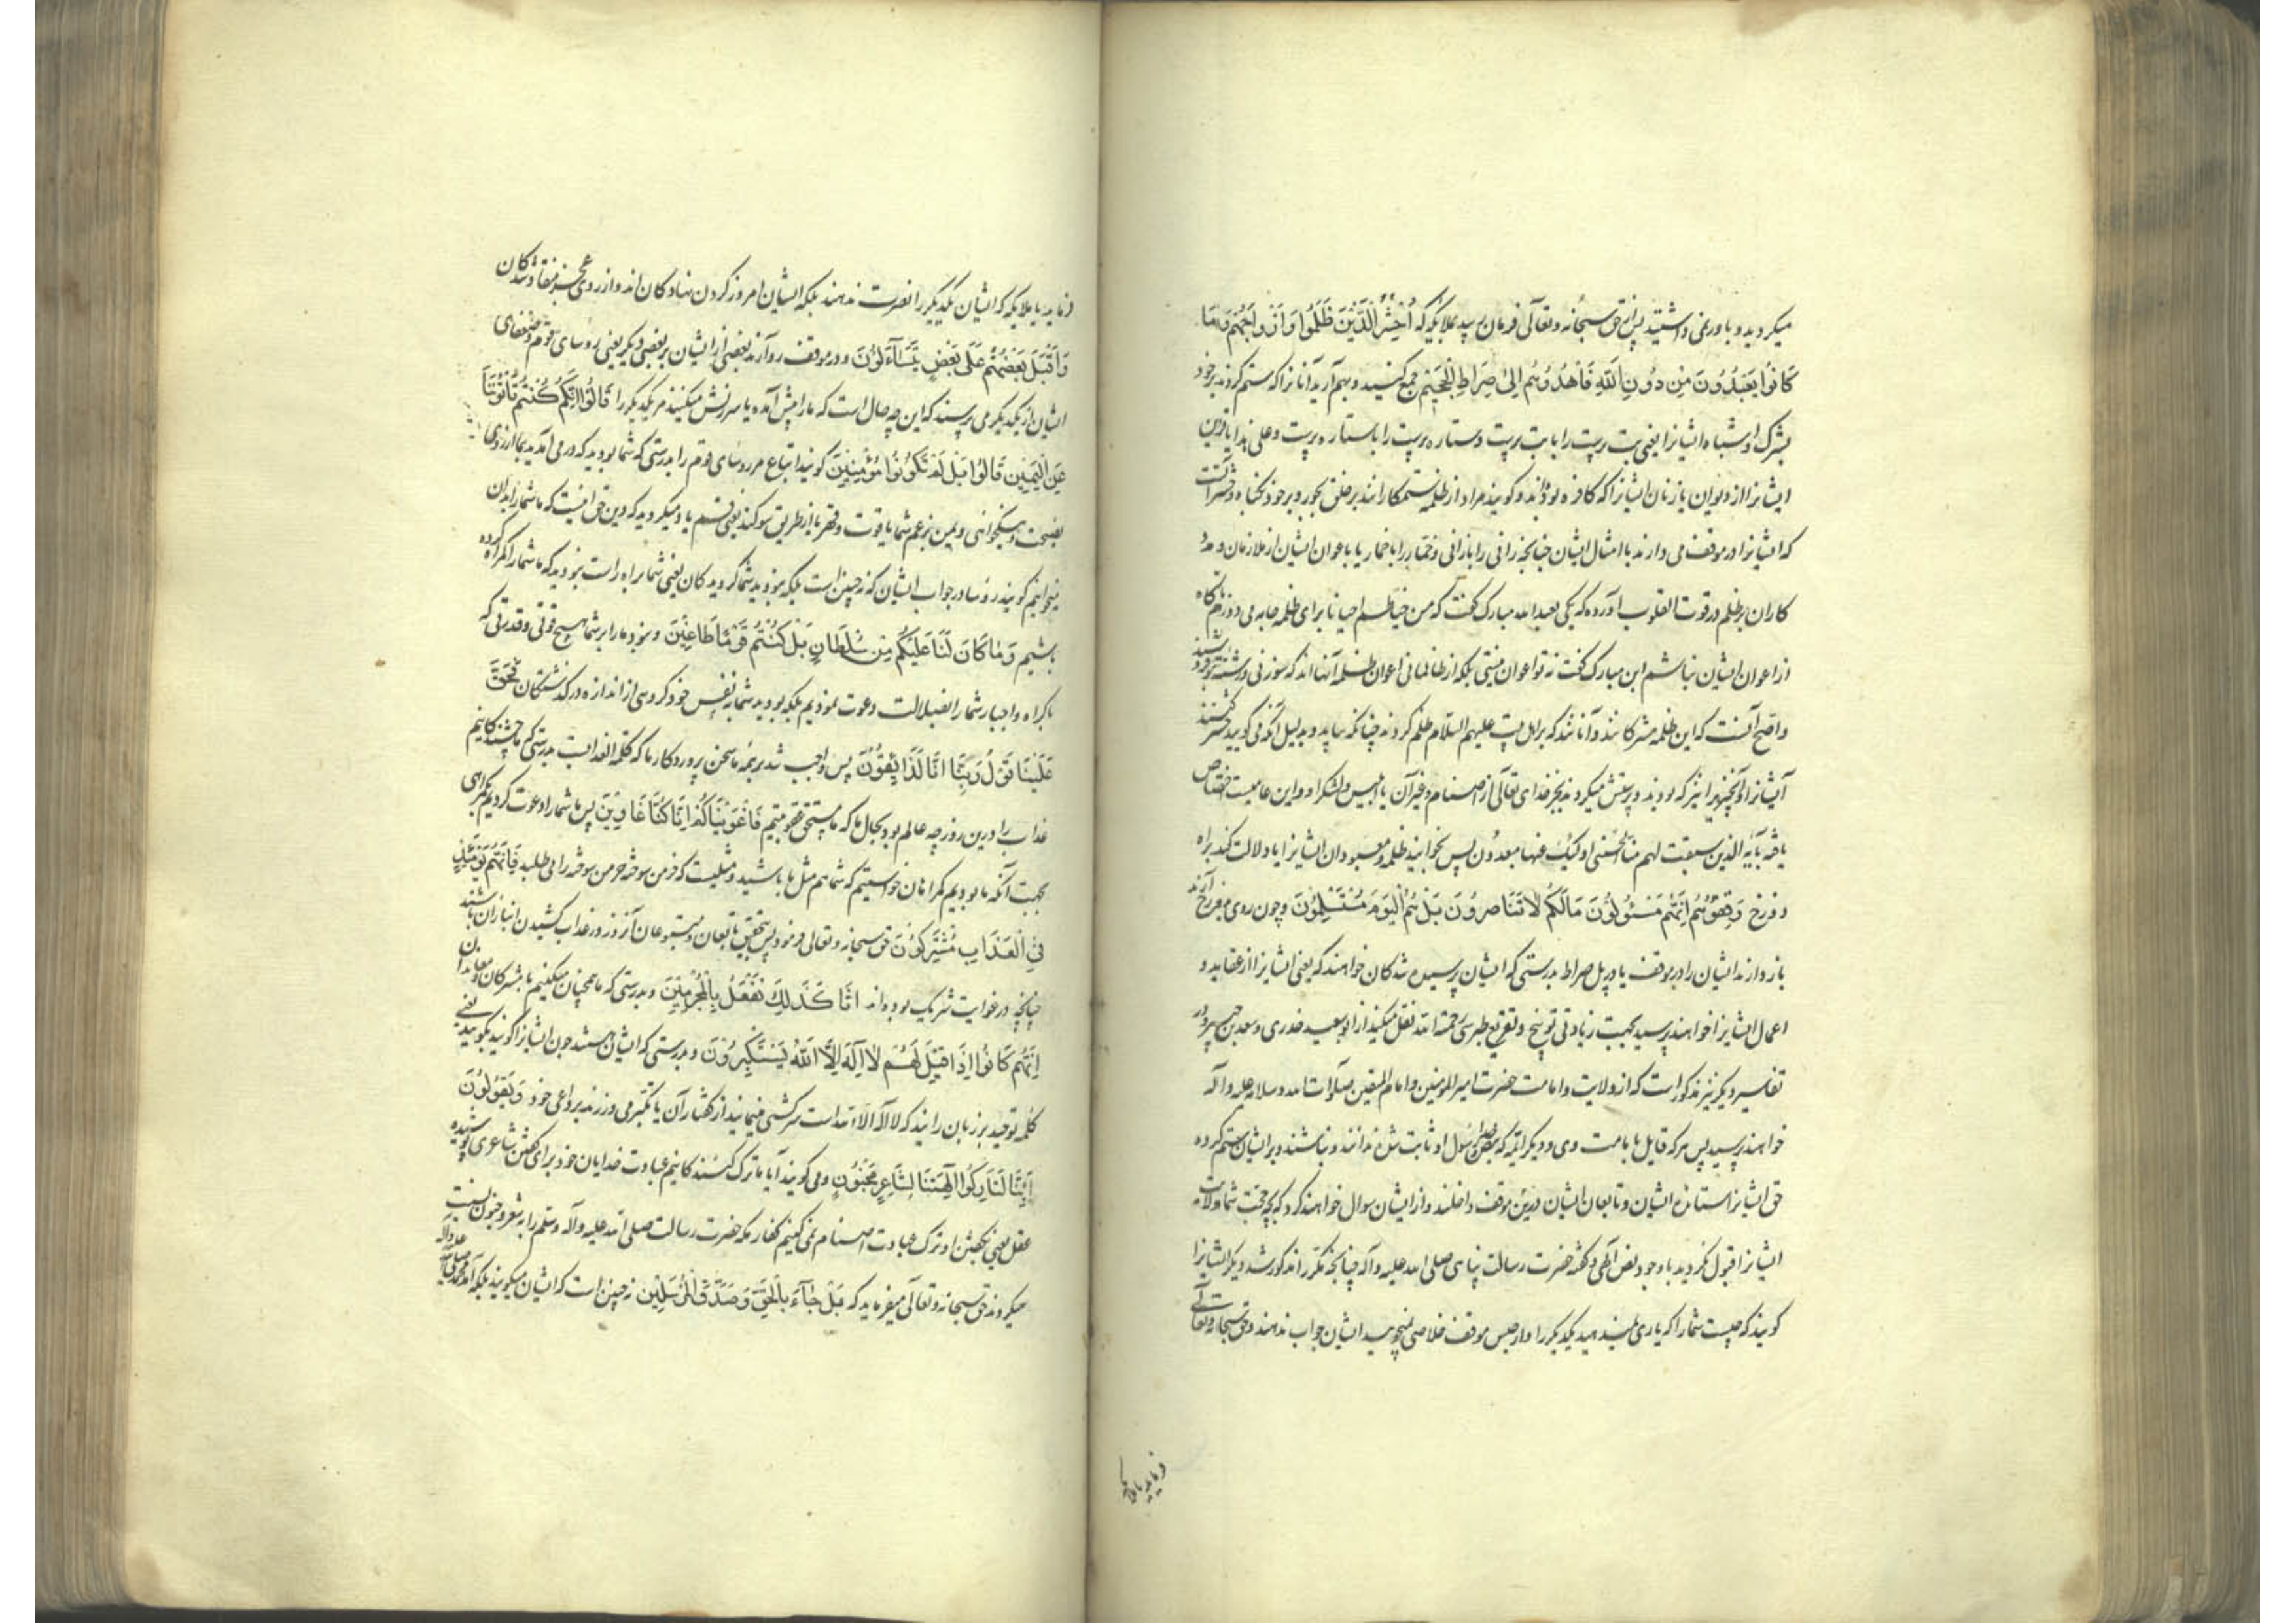 میکردید و باور نمی داشتید پس از حق سبحانه و تعالی فرمان رسید بملایکه که اُحْشُرُوا الَّذِیْنَ ظَلَمُوا وَاَزْوَاجَهُمْ وَمَا
کَانُوا یَعْبُدُوْنَ مِنْ دُوْنِ اللّٰهِ فَاهْدُوْهُمْ اِلیٰ صِرَاطِ الْجَحِیْمِ جمع کنید و بهم آرید آنانرا که ستم کردند بر خود
بشرک و اشباه ایشانرا یعنی بت پرست را با بت پرست و ستاره پرست را با ستاره پرست و علی هذا یا قرین
ایشانرا از دیوان یا زنان ایشانرا که کافره بوده‌اند و گویند مراد از ظلمه ستمکارانند بر خلق بجور و بر خود بگناه و حشر آنست
که ایشانرا در موقف می دارند با امثال ایشان چنانچه زانی را با زانی و خمار را با خمار یا با عوان ایشان از ملازمان و مدد
کاران بر ظلم در قوت القلوب آورده که یکی بعبد الله مبارک گفت که من خیاطم احیانا برای ظلمه جامه می دوزم تا گاه
از اعوان ایشان نباشم ابن مبارک گفت نه تو اعوان نیستی بلکه از ظالمانی اعوان ظلمه آنها اند که سوزن و رشته بتو فروشند
واضح آنست که این ظلمه مشرکانند و آنانند که بر اهل بیت علیهم السلام ظلم کردند چنانکه بیاید و بدلیل آنکه می گوید حشر کنید
آیشانرا و آنچه نیز که بودند و پرستش میکردند بجز خدای تعالی از اصنام و غیر آن یا ابلیس و لشکر او و این عامیست اختصاص
یافته بآیه الذین سبقت لهم منا الحسنی اولئک عنها مبعدون پس بخوانید ظلمه و معبودان ایشانرا یا دلالت کنید براه
دوزخ وَقِفُوْهُمْ اِنَّهُمْ مَسْئُوْلُوْنَ مَالَکُمْ لَا تَنَاصَرُوْنَ بَلْ هُمُ الْیَوْمَ مُسْتَسْلِمُوْنَ و چون روی بدوزخ آرند
باز دارند ایشان را در موقف یا در پل صراط بدرستی که ایشان پرسیده شدگان خواهند که یعنی ایشانرا از عقاید و
اعمال ایشانرا خواهند پرسید بجهت زیادتی توبیخ و تقریع طبرسی رحمة الله نقل میکند از ابو سعید خدری و سعد بن جبیر و در
تفاسیر دیگر نیز مذکور است که از ولایت و امامت حضرت امیر المومنین و امام المتقین صلوات الله و سلامه علیه و آله
خواهند پرسید پس هر که قایل بامامت وی و دیگر ائمه که بنص خدا و رسول او ثابت شده ندانند و نباشند و بر ایشان ستم کرده
حق ایشانرا ستانده ایشان و تابعان ایشان درین موقف داخلند و از ایشان سوال خواهند کرد که بچه حجت شما ولایت
ایشانرا قبول نکردید با وجود نص الهی و گفته حضرت رسالت پناهی صلی الله علیه و آله چنانچه مکرر مذکور شد دیگر ایشانرا
گویند که چیست شمارا که یاری نمیدهید یکدیگر را و از حبس موقف خلاصی نمیجویید ایشان جواب ندهند و حق سبحانه و تعالی
فرماید یا ملایکه
فرماید یا ملایکه که ایشان یکدیگر را نصرت ندهند بلکه ایشان امروز گردن نهادگان اند و از روی عجز منقاد شدگان
وَاَقْبَلَ بَعْضُهُمْ عَلَی بَعْضٍ یَتَسَآءَلُوْنَ و در موقف روآرند بعضی از ایشان بر بعضی دیگر یعنی روسای قوم و ضعفای
ایشان از یکدیگر می پرسند که این چه حال است که مارا پیش آمده یا سرزنش میکنند مر یکدیگر را قَالُوْا اِنَّکُمْ کُنْتُمْ تَاْتُوْنَنَا
عَنِ الْیَمِیْنِ قَالُوْا بَلْ لَمْ تَکُوْنُوْا مُؤْمِنِیْنَ گویند اتباع مر روسای قوم را بدرستی که شما بودید که در می آمدید بما از روی
نصیحت و نیکخواهی و یمین بزعم شما یا قوت و قهر یا از طریق سوگند یعنی قسم یاد میکردید که دین حق اینست که ما شمارا بدان
میخوانیم گویند روسا در جواب ایشان که نه چنین است بلکه نبودید شما گرویدگان یعنی شما براه راست نبودید که ما شمارا گمراه کرده
باشیم وَمَا کَانَ لَنَا عَلَیْکُمْ مِنْ سُلْطَانٍ بَلْ کُنْتُمْ قَوْمًا طَاغِیْنَ و نبود مارا بر شما هیچ قوتی و قدرتی که
باکراه و اجبار شمارا بضلالت دعوت نمودیم بلکه بودید شما بنفس خود گروهی از اندازه درگذشتگان فَحَقَّ
عَلَیْنَا قَوْلُ رَبِّنَا اِنَّا لَذَائِقُوْنَ پس واجب شد بر همه ما سخن پروردگار ما که کلمه العذابست بدرستی که ما چشندگانیم
عذاب را درین روز چه عالم بود بحال ما که ما مستحق عقوبتیم فَاَغْوَیْنَاکُمْ اِنَّا کُنَّا غَاوِیْنَ پس ما شمارا دعوت کردیم بگمراهی
بجهت آنکه ما بودیم گمراهان خواستیم که شما هم مثل ما باشید و مثلیست که خرمن سوخته خرمن سوخته را می طلبد فَاِنَّهُمْ یَوْمَئِذٍ
فِی الْعَذَابِ مُشْتَرِکُوْنَ حق سبحانه و تعالی فرمود پس بتحقیق تابعان و متبوعان آنروز در عذاب کشیدن انبازان باشند
چنانچه در غوایت شریک بوده‌اند اِنَّا کَذَلِکَ نَفْعَلُ بِالْمُجْرِمِیْنَ و بدرستی که ما همچنان میکنیم با مشرکان و معاندان
اِنَّهُمْ کَانُوْا اِذَا قِیْلَ لَهُمْ لَا اِلٰهَ اِلَّا اللّٰهُ یَسْتَکْبِرُوْنَ و بدرستی که ایشان هستند چون ایشانرا گویند بگویید یعنی
کلمه توحید بر زبان رانید که لا اله الا الله است سرکشی مینمایند از گفتار آن یا تکبر می ورزند بر داعی خود وَیَقُوْلُوْنَ
اَئِنَّا لَتَارِکُوا اٰلِهَتِنَا لِشَاعِرٍ مَجْنُوْنٍ و می گویند آیا ما ترک کنندگانیم عبادت خدایان خود برای گفتن شاعری پوشیده
عقل یعنی بگفتن او ترک عبادت اصنام نمی کنیم کفار مکه حضرت رسالت صلی الله علیه وآله وسلم را به شعر و جنون نسبت
میکردند حق سبحانه و تعالی میفرماید که بَلْ جَآءَ بِالْحَقِّ وَصَدَّقَ الْمُرْسَلِیْنَ نه چنین است که ایشان میگویند بلکه آمد محمد صلی الله علیه وآله